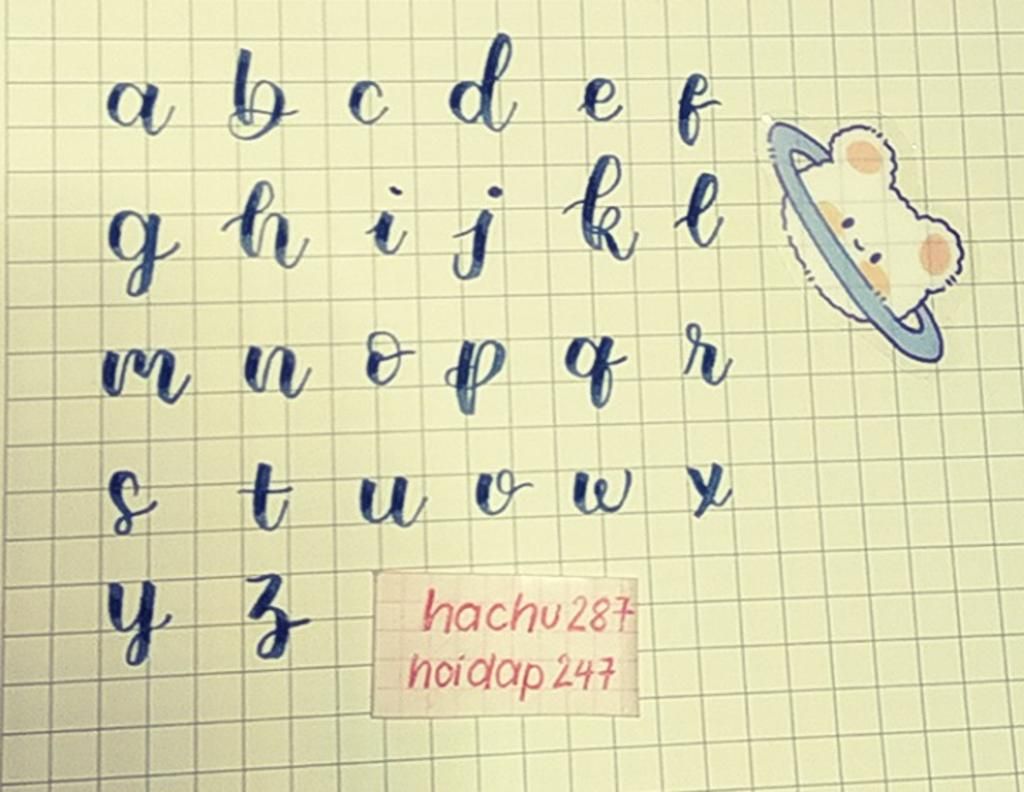 a b c d e f
g h i j k l
m n o p q r
s t u v w x
y z
hachu287
hoidap247